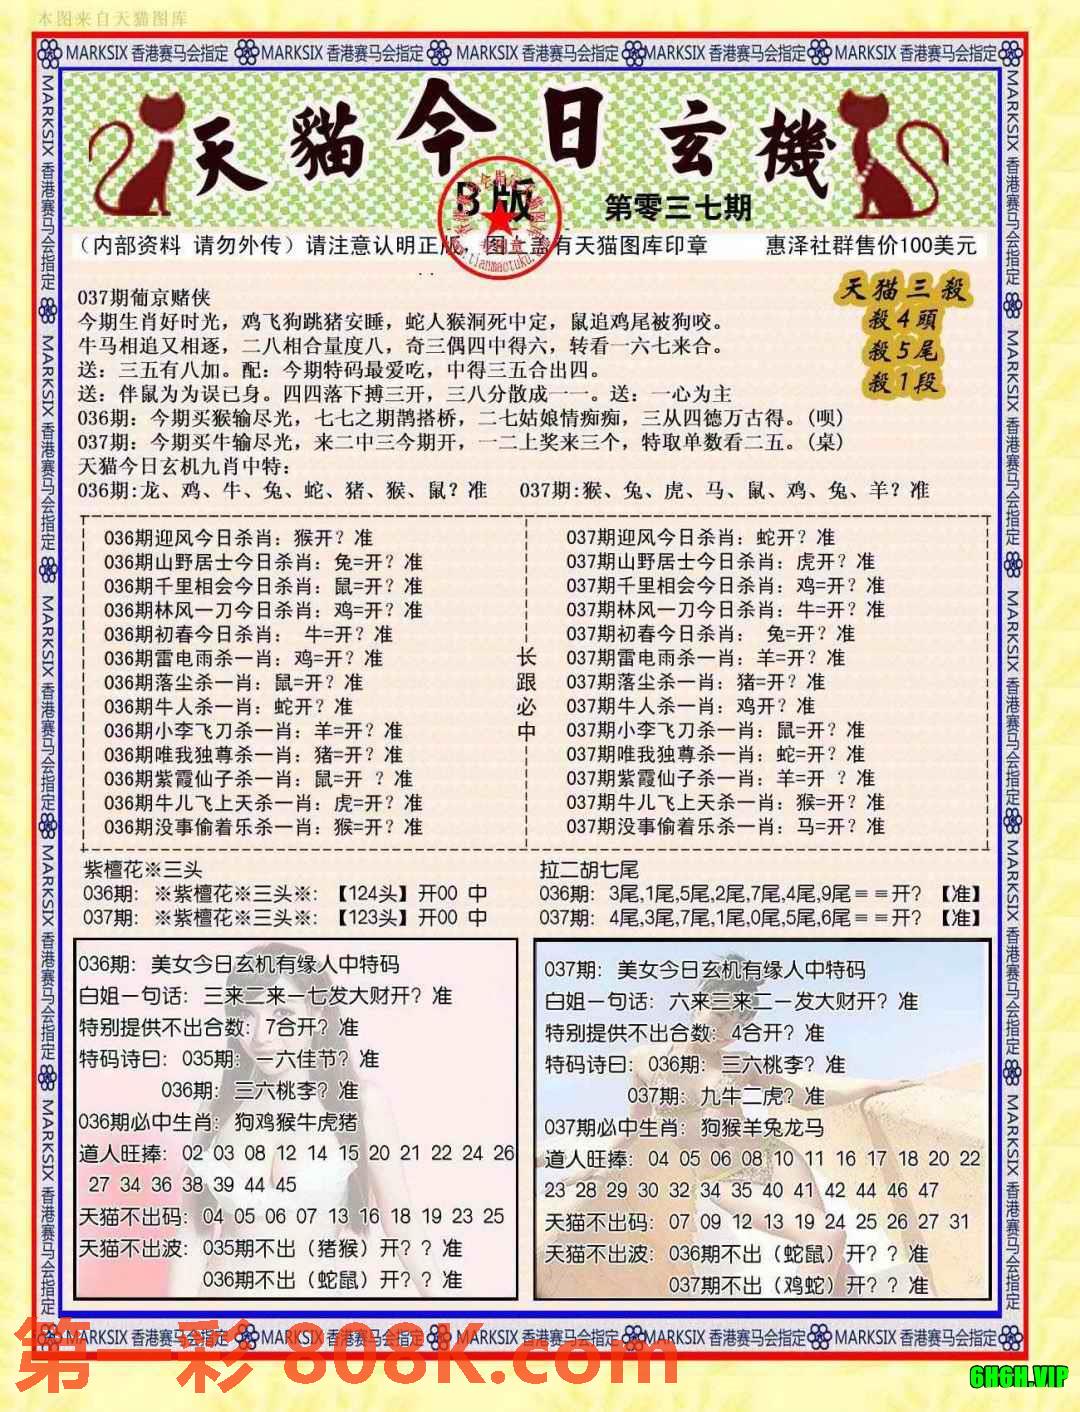 本图来自天猫图库
MARKSIX 香港赛马会指定 MARKSIX 香港赛马会指定 MARKSIX 香港赛马会指定 MARKSIX 香港赛马会指定 MARKSIX 香港赛马会指定
天貓今日玄機
B版
第零三七期
（内部资料 请勿外传）请注意认明正版，图上盖有天猫图库印章 惠泽社群售价100美元
天猫三殺
殺4頭
殺5尾
殺1段
037期葡京赌侠
今期生肖好时光，鸡飞狗跳猪安睡，蛇人猴洞死中定，鼠追鸡尾被狗咬。
牛马相追又相逐，二八相合量度八，奇三偶四中得六，转看一六七来合。
送：三五有八加。配：今期特码最爱吃，中得三五合出四。
送：伴鼠为为误已身。四四落下搏三开，三八分散成一一。送：一心为主
036期：今期买猴输尽光，七七之期鹊搭桥，二七姑娘情痴痴，三从四德万古得。(呗)
037期：今期买牛输尽光，来二中三今期开，一二上奖来三个，特取单数看二五。(桌)
天猫今日玄机九肖中特：
036期:龙、鸡、牛、兔、蛇、猪、猴、鼠？准 037期:猴、兔、虎、马、鼠、鸡、兔、羊？准
036期迎风今日杀肖：猴开？准
036期山野居士今日杀肖：兔=开？准
036期千里相会今日杀肖：鼠=开？准
036期林风一刀今日杀肖：鸡=开？准
036期初春今日杀肖： 牛=开？准
036期雷电雨杀一肖：鸡=开？准
036期落尘杀一肖：鼠=开？准
036期牛人杀一肖：蛇开？准
036期小李飞刀杀一肖：羊=开？准
036期唯我独尊杀一肖：猪=开？准
036期紫霞仙子杀一肖：鼠=开 ？准
036期牛儿飞上天杀一肖：虎=开？准
036期没事偷着乐杀一肖：猴=开？准
长跟必中
037期迎风今日杀肖：蛇开？准
037期山野居士今日杀肖：虎开？准
037期千里相会今日杀肖：鸡=开？准
037期林风一刀今日杀肖：牛=开？准
037期初春今日杀肖： 兔=开？准
037期雷电雨杀一肖：羊=开？准
037期落尘杀一肖：猪=开？准
037期牛人杀一肖：鸡开？准
037期小李飞刀杀一肖：鼠=开？准
037期唯我独尊杀一肖：蛇=开？准
037期紫霞仙子杀一肖：羊=开 ？准
037期牛儿飞上天杀一肖：猴=开？准
037期没事偷着乐杀一肖：马=开？准
紫檀花※三头
036期：※紫檀花※三头※：【124头】开00 中
037期：※紫檀花※三头※：【123头】开00 中
拉二胡七尾
036期：3尾,1尾,5尾,2尾,7尾,4尾,9尾＝＝开？【准】
037期：4尾,3尾,7尾,1尾,0尾,5尾,6尾＝＝开？【准】
036期：美女今日玄机有缘人中特码
白姐一句话：三来二来一七发大财开？准
特别提供不出合数：7合开？准
特码诗曰：035期：一六佳节？准
036期：三六桃李？准
036期必中生肖：狗鸡猴牛虎猪
道人旺捧：02 03 08 12 14 15 20 21 22 24 26
27 34 36 38 39 44 45
天猫不出码：04 05 06 07 13 16 18 19 23 25
天猫不出波：035期不出（猪猴）开？？准
036期不出（蛇鼠）开？？准
037期：美女今日玄机有缘人中特码
白姐一句话：六来三来二一发大财开？准
特别提供不出合数：4合开？准
特码诗曰：036期：三六桃李？准
037期：九牛二虎？准
037期必中生肖：狗猴羊兔龙马
道人旺捧：04 05 06 08 10 11 16 17 18 20 22
23 28 29 30 32 34 35 40 41 42 44 46 47
天猫不出码：07 09 12 13 19 24 25 26 27 31
天猫不出波：036期不出（蛇鼠）开？？准
037期不出（鸡蛇）开？？准
MARKSIX 香港赛马会指定 MARKSIX 香港赛马会指定 MARKSIX 香港赛马会指定 MARKSIX 香港赛马会指定 MARKSIX 香港赛马会指定
第一彩 808K.com
6H6H.VIP